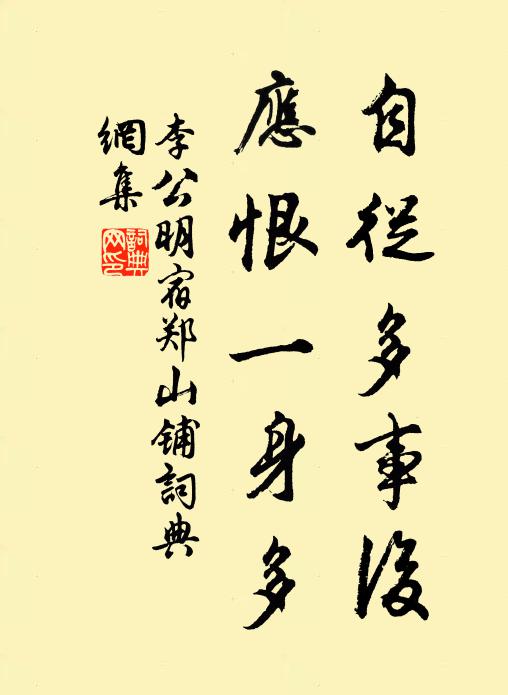 自從多事後
應恨一身多
李公明宿郑山鋪詞典
網集
詞典
网印